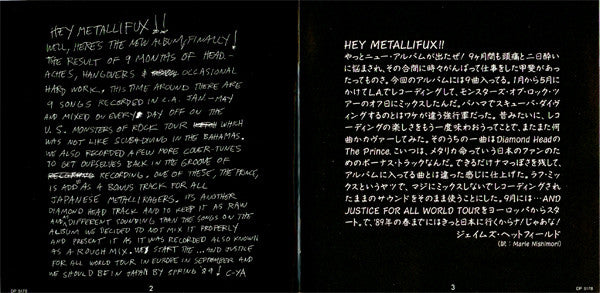 HEY METALLIFUX!!
WELL, HERE'S THE NEW ALBUM, FINALLY!
THE RESULT OF 9 MONTHS OF HEAD-
ACHES, HANGOVERS & OCCASIONAL
HARD WORK., THIS TIME AROUND THERE ARE
9 SONGS RECORDED IN L.A. JAN.-MAY
AND MIXED ON EVERY DAY OFF ON THE
U.S. MONSTERS OF ROCK TOUR WHICH
WAS NOT LIKE SCUBA-DIVING IN THE BAHAMAS.
WE ALSO RECORDED A FEW MORE COVER-TUNES
TO GET OURSELVES BACK IN THE GROOVE OF
RECORDING. ONE OF THESE, THE PRINCE,
IS ADD AS A BONUS TRACK FOR ALL
JAPANESE METALLIRAGERS. ITS ANOTHER
DIAMOND HEAD TRACK AND TO KEEP IT AS RAW
AND DIFFERENT SOUNDING THAN THE SONGS ON THE
ALBUM WE DECIDED TO NOT MIX IT PROPERLY
AND PRESENT IT AS IT WAS RECORDED ALSO KNOWN
AS A ROUGH MIX. WE START THE ...AND JUSTICE
FOR ALL WORLD TOUR IN EUROPE IN SEPTEMBER AND
WE SHOULD BE IN JAPAN BY SPRING '89! C-YA
DP 5178
2
HEY METALLIFUX!!
やっとニュー・アルバムが出たぜ! 9ヶ月間も頭痛と二日酔い
に悩まされ、その合間に時々がんばって仕事をした甲斐があっ
たってものさ。今回のアルバムには9曲入ってる。1月から5月に
かけてLAでレコーディングして、モンスターズ・オブ・ロック・ツ
アーのオフ日にミックスしたんだ。バハマでスキューバ・ダイヴ
ィングするのとはワケが違う強行軍だった。昔みたいに、レコ
ーディングの楽しさをもう一度味わおうってことで、またまた何
曲かカヴァーしてみた。そのうちの一曲はDiamond Headの
The Prince。こいつは、メタリカ命っていう日本のファンのため
のボーナス・トラックなんだ。できるだけナマっぽさを残して、
アルバムに入ってる曲とは違った感じに仕上げた。ラフ・ミッ
クスというヤツで、マジにミックスしないでレコーディングされ
たままのサウンドをそのまま使うことにした。9月には…AND
JUSTICE FOR ALL WORLD TOURをヨーロッパからスタ
ート。で、'89年の春までにはきっと日本に行くからナ!じゃあな!
ジェイムズ・ヘットフィールド
(訳:Marie Nishimori)
3
DP 5178